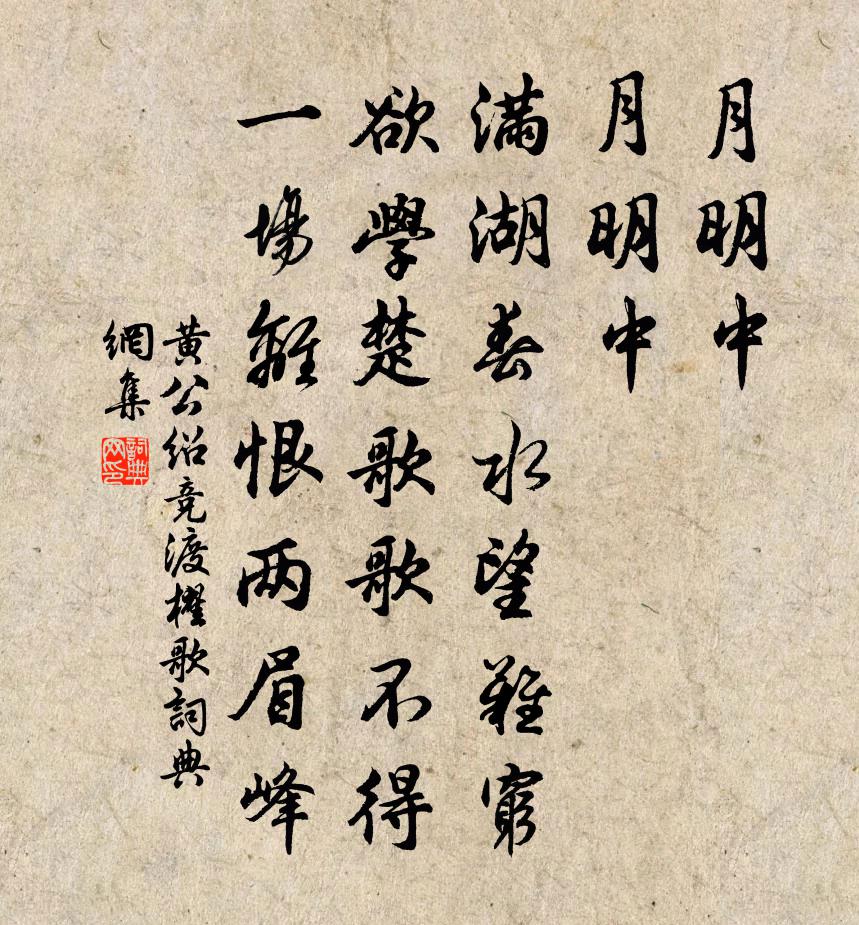 月明中
月明中
滿湖春水望難窮
欲學楚歌歌不得
一場離恨两眉峰
黃公紹競渡櫂歌詞典
網集
詞典
网印